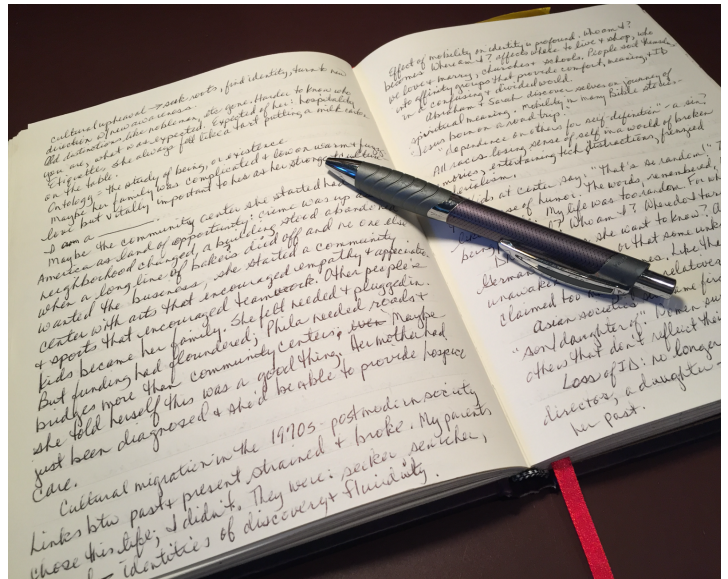 Cultural upheaval → seek roots, find identity, turn to new
direction of new awareness.
Old distinctions, like nobleman, etc gone. Harder to know who
you are, what was expected. Expected of her: hospitality
Etiquette she always felt like a tart putting a milk carton
on the table.
Ontology - the study of being, or existence
Maybe her family was complicated & low on warmth &
love but vitally important to her as her strongest
I am a
Maybe the community center she started had
America as land of opportunity: crime was up as
neighborhood changed, a building stood abandoned
when a long line of bakers died off and no one else
wanted the business, she started a community
center with arts that encouraged empathy & appreciate
& sports that encouraged teamwork. Other people's
kids became her family. She felt needed & plugged in.
But funding had floundered; Phila needed roads &
bridges more than community centers. Maybe
she told herself this was a good thing. Her mother had
just been diagnosed & she'd be able to provide hospice
care.
Cultural migration in the 1970s - postmodern society
Links btw past & present strained & broke. My parents
chose this life; I didn't. They were: seeker, searcher,
identities of discovery & fluidity.
Effect of mobility on identity is profound. Who am I?
becomes Where am I? affects where to live & shop, who
we love & marry, churches & schools. People sort themselves
into affinity groups that provide comfort, meaning, & ID
in a confusing & divided world.
Abraham & Sarah discover selves on journey of
spiritual meaning & mobility in many Bible stories -
Jesus born on a road trip.
"dependence on others for self-definition" - a sin?
All races losing sense of self in a world of broken
memories, entertaining tech distractions, frenzied
materialism.
Kids at center say: "That's so random."
sense of humor? The words, remembered,
My life was too random. For
Who am I? Where do I
she want to know?
that some
German
unaware
Like the
claimed too
relatives
Asian societies
some
"son/daughter of". Women
others that don't reflect their
Loss of ID: no longer
director, a daughter
her past.